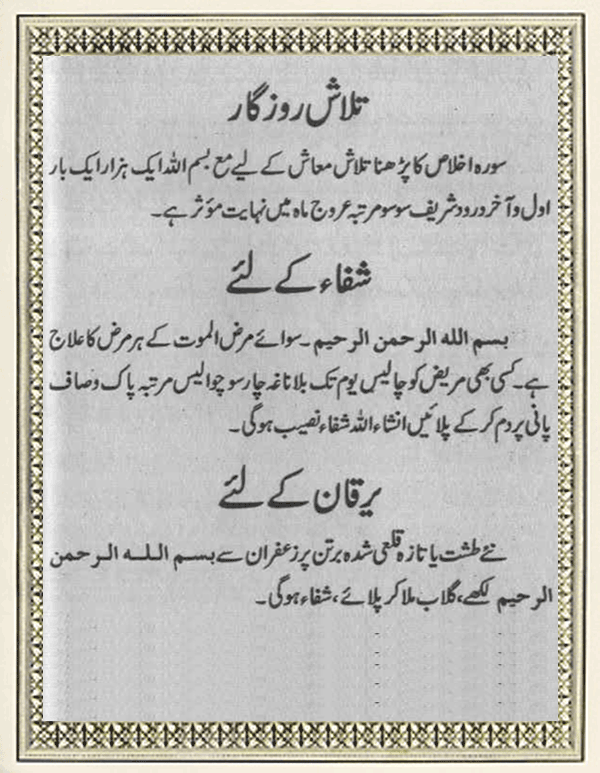 تلاش روزگار
سورہ اخلاص کا پڑھنا تلاش معاش کے لیے مع بسم اللہ ایک ہزار ایک بار
اول و آخر درود شریف سو سو مرتبہ عروج ماہ میں نہایت مؤثر ہے۔
شفاء کے لئے
بسم الله الرحمن الرحيم۔ سوائے مرض الموت کے ہر مرض کا علاج
ہے۔ کسی بھی مریض کو چالیس یوم تک بلا ناغہ چار سو چوالیس مرتبہ پاک و صاف
پانی پر دم کر کے پلائیں انشاء اللہ شفاء نصیب ہوگی۔
یرقان کے لئے
نئے طشت یا تازہ قلعی شدہ برتن پر زعفران سے بسم الله الرحمن
الرحيم لکھے، گلاب ملا کر پلائے، شفاء ہوگی۔